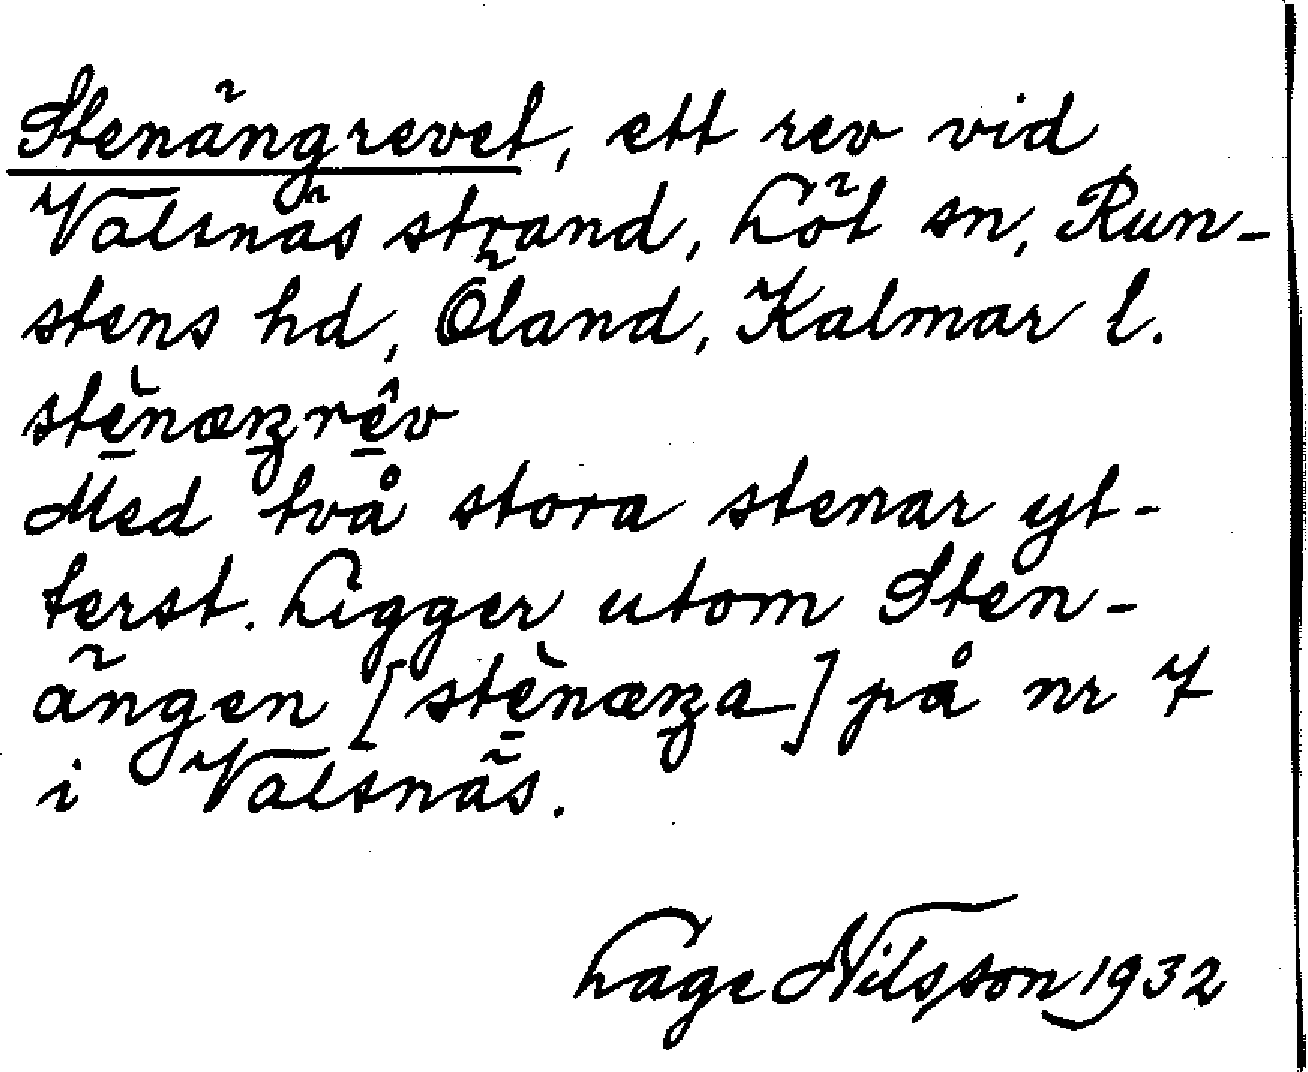 Stenängrevet, ett rev vid
Valsnäs strand, Löt sn, Run-
stens hd, Öland, Kalmar l.
stènæŋrêv
Med två stora stenar yt-
terst. Ligger utom Sten-
ängen [stènæŋa] på nr 7
i Valsnäs.
Lage Nilsson 1932